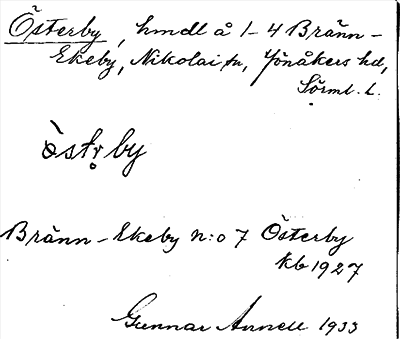 Österby, hmdl å 1-4 Bränn-
Ekeby, Nikolai sn, Jönåkers hd,
Sörml. l.
òstr̥by
Bränn-Ekeby N:o 7 Österby
kb 1927
Gunnar Annell 1933